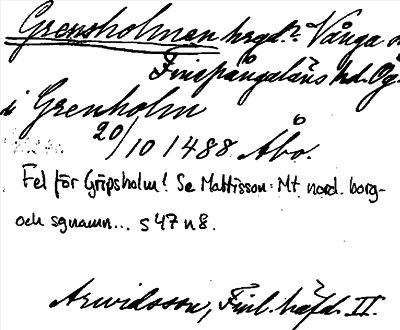 Grensholmen hrgd? Vånga
Finspångaläns hd. Ög.
i Grenholm
20/10 1488 Åbo.
Fel för Gripsholm! Se Mattisson: Mt nord. borg-
och sgnamn... s 47 n 8.
Arwidsson, Finl. häfd. II.